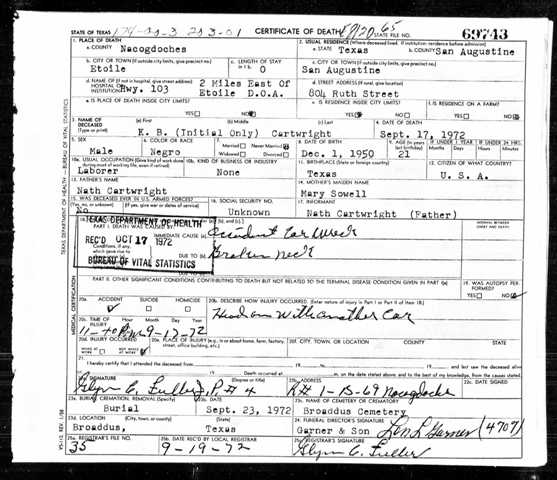 STATE OF TEXAS 174-20-3 203-01 CERTIFICATE OF DEATH STATE FILE NO. 69743
1. PLACE OF DEATH 2. USUAL RESIDENCE (Where deceased lived. If institution: residence before admission)
a. COUNTY Nacogdoches a. STATE Texas b. COUNTY San Augustine
b. CITY OR TOWN (If outside city limits, give precinct no.) c. LENGTH OF STAY c. CITY OR TOWN (If outside city limits, give precinct no.)
Etoile 0 San Augustine
d. NAME OF (If not in hospital, give street address) 2 Miles East Of d. STREET ADDRESS (If rural, give location)
HOSPITAL OR INSTITUTION Hwy. 103 Etoile D.O.A. 804 Ruth Street
e. IS PLACE OF DEATH INSIDE CITY LIMITS? e. IS RESIDENCE INSIDE CITY LIMITS? f. IS RESIDENCE ON A FARM?
YES NO YES NO YES NO
3. NAME OF DECEASED (Type or print) (a) First (b) Middle (c) Last 4. DATE OF DEATH
K. B. (Initial Only) Cartwright Sept. 17, 1972
5. SEX 6. COLOR OR RACE 7. Married Never Married 8. DATE OF BIRTH 9. AGE (In years last birthday) IF UNDER 1 YEAR IF UNDER 24 HRS.
Male Negro Widowed Divorced Dec. 1, 1950 21 Months Days Hours Min.
10a. USUAL OCCUPATION (Give kind of work done 10b. KIND OF BUSINESS OR INDUSTRY 11. BIRTHPLACE (State or foreign country) 12. CITIZEN OF WHAT COUNTRY?
Laborer None Texas U. S. A.
13. FATHER'S NAME 14. MOTHER'S MAIDEN NAME
Nath Cartwright Mary Sowell
15. WAS DECEASED EVER IN U.S. ARMED FORCES? 16. SOCIAL SECURITY NO. 17. INFORMANT
(Yes, no, or unknown) (If yes, give war or dates of service)
No Unknown Nath Cartwright (Father)
TEXAS DEPARTMENT OF HEALTH
PART I. DEATH WAS CAUSED BY: INTERVAL BETWEEN ONSET AND DEATH
REC'D OCT 17 1972 IMMEDIATE CAUSE (a) Accident Car Wreck
DUE TO (b) Broken neck
BUREAU OF VITAL STATISTICS DUE TO (c)
OTHER SIGNIFICANT CONDITIONS CONTRIBUTING TO DEATH BUT NOT RELATED TO THE TERMINAL DISEASE CONDITION GIVEN IN PART I(a) 19. WAS AUTOPSY PERFORMED?
YES NO
20a. ACCIDENT SUICIDE HOMICIDE 20b. DESCRIBE HOW INJURY OCCURRED. (Enter nature of injury in Part I or Part II of item 18.)
Head on With another Car
20c. TIME OF INJURY 9-17-72
20d. INJURY OCCURRED 20e. PLACE OF INJURY (e.g., in or about home, farm, factory, street, office building, etc.) 20f. CITY, TOWN, OR LOCATION COUNTY STATE
21. I hereby certify that I attended the deceased from 19 to 19 and last saw the deceased alive
on 19 Death occurred at m. on the date stated above; and to the best of my knowledge, from the causes stated.
22a. SIGNATURE (Degree or title) 22b. ADDRESS 22c. DATE SIGNED
Glynn C. Fuller, P. # 4 Rt 1-B-69 Nacogdoches
23a. BURIAL, CREMATION, REMOVAL (Specify) 23b. DATE 23c. NAME OF CEMETERY OR CREMATORY
Burial Sept. 23, 1972 Broaddus Cemetery
23d. LOCATION (City, town, or county) (State) 24. FUNERAL DIRECTOR'S SIGNATURE
Broaddus, Texas Garner & Son Len L Garner (4707)
25a. REGISTRAR'S FILE NO. 25b. DATE REC'D BY LOCAL REGISTRAR 25c. REGISTRAR'S SIGNATURE
35 9-19-72 Glynn C. Fuller
TEXAS DEPARTMENT OF HEALTH — BUREAU OF VITAL STATISTICS
MEDICAL CERTIFICATION